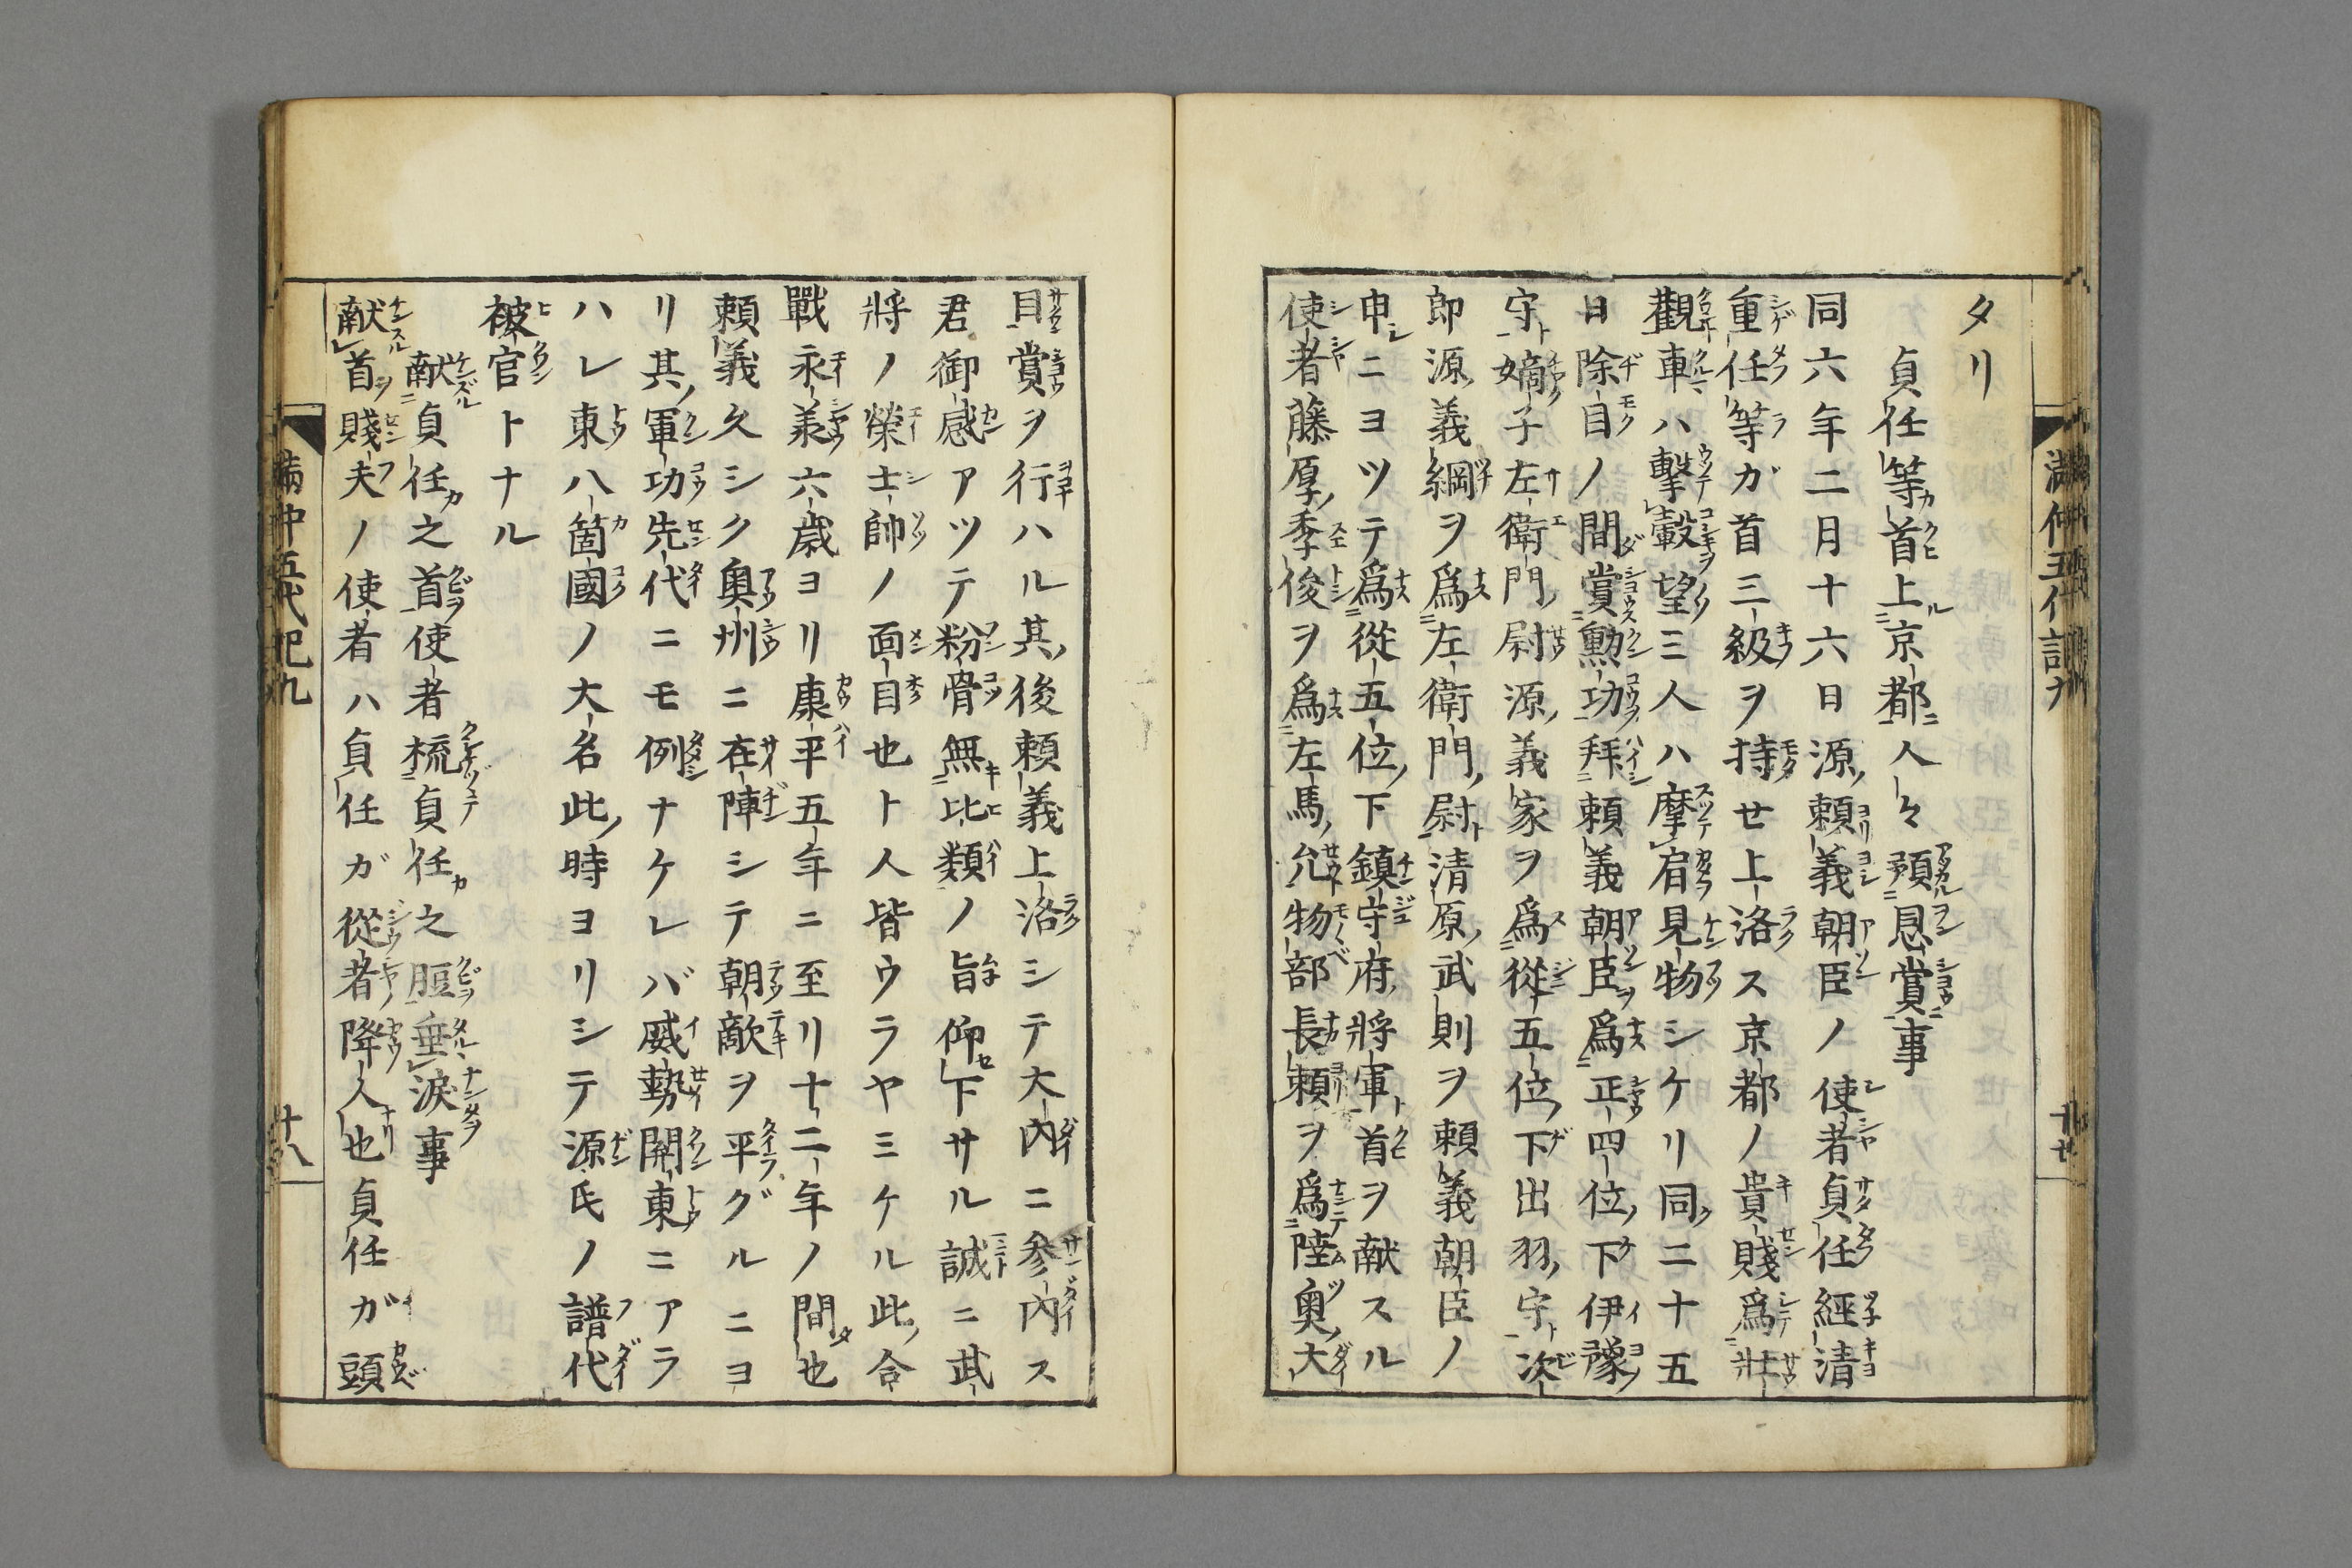 タリ
貞任等首上京都人々預恩賞事
同六年二月十六日源頼義朝臣ノ使者貞任經清
重任等ガ首三級ヲ持セ上洛ス京都ノ貴賤爲壯
觀車ハ擊轂望三人ハ摩肩見物シケリ同二十五
日除目ノ間賞勲功拜頼義朝臣爲正四位下伊豫
守嫡子左衛門尉源義家ヲ爲從五位下出羽守次
郎源義綱ヲ爲左衛門尉清原武則ヲ頼義朝臣ノ
申ニヨツテ爲從五位下鎮守府將軍首ヲ献スル
使者藤原季俊ヲ爲左馬允物部長頼ヲ爲陸奧大
目賞ヲ行ハル其後頼義上洛シテ大内ニ参内ス
君御感アツテ粉骨無比類ノ旨仰下サル誠ニ武
將ノ榮士帥ノ面目也ト人皆ウラヤミケル此合
戰永羕六歳ヨリ康平五年ニ至リ十二年ノ間也
頼義久シク奧州ニ在陣シテ朝敵ヲ平グルニヨ
リ其軍功先代ニモ例ナケレバ威勢開東ニアラ
ハレ東八箇國ノ大名此時ヨリシテ源氏ノ譜代
被官トナル
献貞任之首使者梳貞任之脰垂涙事
献首賤夫ノ使者ハ貞任ガ從者降人也貞任ガ頭
満仲五代記九
十八